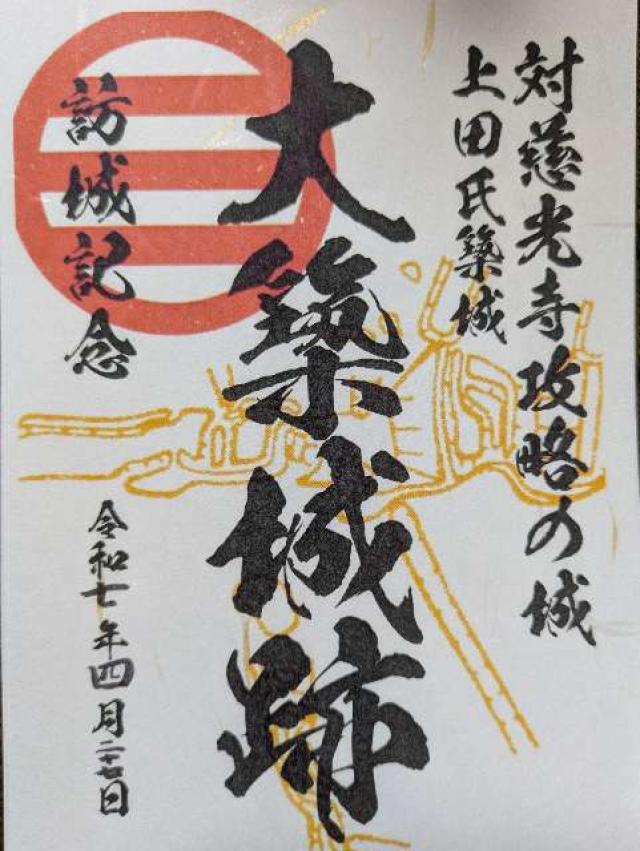 対慈光寺攻略の城
上田氏築城
大築城跡
訪城記念
令和七年四月二十七日